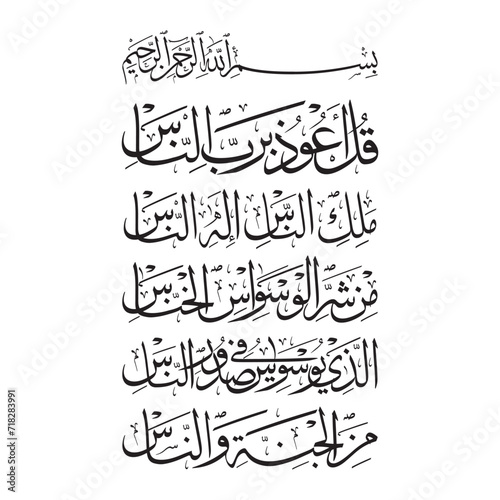 بِسْمِ ٱللَّهِ ٱلرَّحْمَٰنِ ٱلرَّحِيمِ
قُلْ أَعُوذُ بِرَبِّ النَّاسِ
مَلِكِ النَّاسِ إِلَٰهِ النَّاسِ
مِنْ شَرِّ الْوَسْوَاسِ الْخَنَّاسِ
الَّذِي يُوَسْوِسُ فِي صُدُورِ النَّاسِ
مِنَ الْجِنَّةِ وَالنَّاسِ
Adobe Stock | #718283991
Adobe Stock